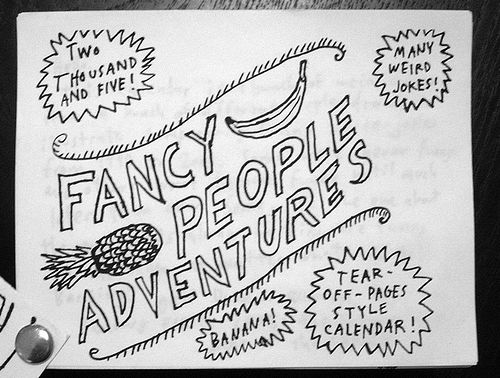 TWO
THOUSAND
AND FIVE!
MANY
WEIRD
JOKES!
FANCY
PEOPLE
ADVENTURES
BANANA!
TEAR-
OFF-PAGES
STYLE
CALENDAR!